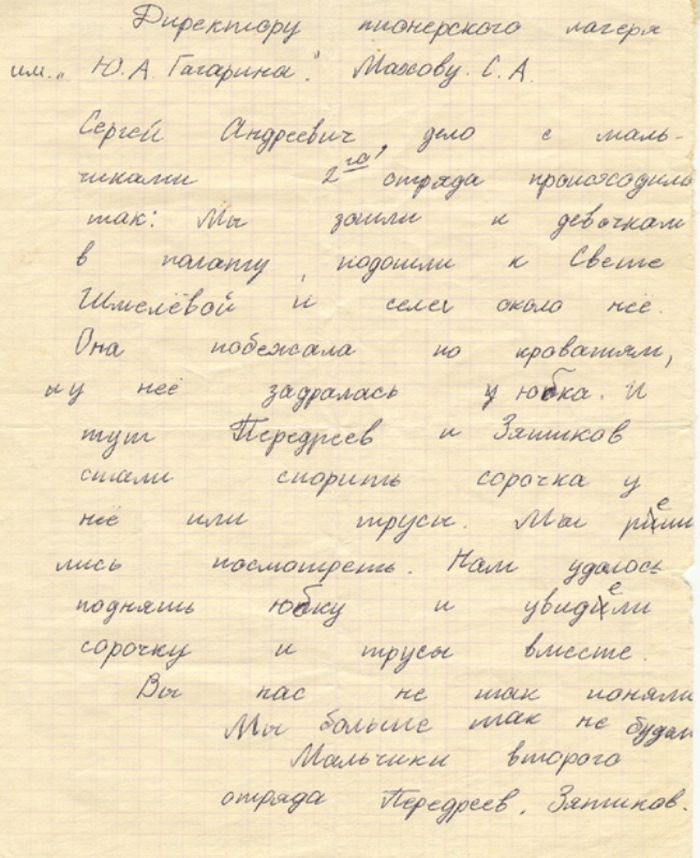 Директору пионерского лагеря
им. „Ю.А. Гагарина". Махову. С.А.
Сергей Андреевич, дело с маль-
чиками 2го отряда происходило
так: Мы зошли к девочкам
в палату, подошли к Свете
Шмелёвой и селеи около неё.
Она побежала по кроватям,
и у неё задралась юбка. И
тут Передреев и Зятиков
стали спорить сорочка у
неё или трусы. Мы реши
лись посмотреть. Нам удалось
поднять юбку и увидели
сорочку и трусы вместе.
Вы нас не так поняли
Мы больше так не будем
Мальчики второго
отряда Передреев, Зятиков.